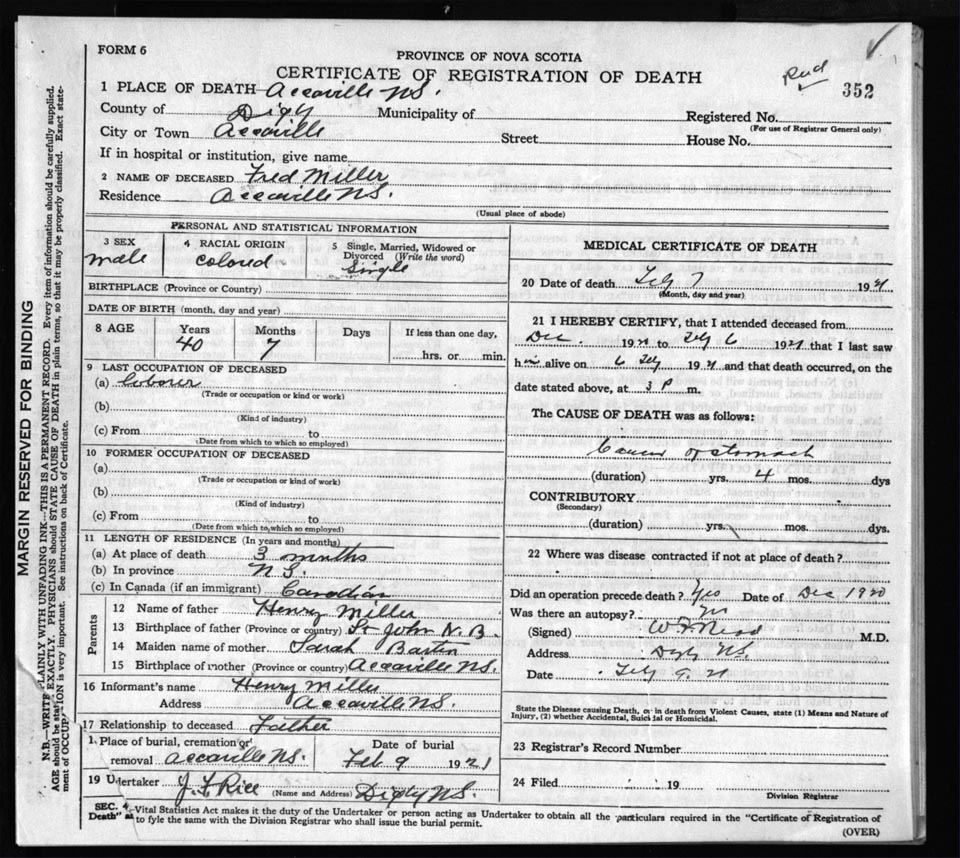 FORM 6
PROVINCE OF NOVA SCOTIA
CERTIFICATE OF REGISTRATION OF DEATH
352
1 PLACE OF DEATH Accaville N.S.
County of Digby Municipality of
Registered No.
(For use of Registrar General only)
City or Town Accaville Street House No.
If in hospital or institution, give name
2 NAME OF DECEASED Fred Miller
Residence Accaville N.S.
(Usual place of abode)
PERSONAL AND STATISTICAL INFORMATION
3 SEX
male
4 RACIAL ORIGIN
colored
5 Single, Married, Widowed or
Divorced (Write the word)
Single
BIRTHPLACE (Province or Country)
DATE OF BIRTH (month, day and year)
8 AGE Years Months Days If less than one day,
40 7 hrs. or min.
9 LAST OCCUPATION OF DECEASED
(a) Laborer
(Trade or occupation or kind or work)
(b)
(Kind of industry)
(c) From to
(Date from which to which so employed)
10 FORMER OCCUPATION OF DECEASED
(a)
(Trade or occupation or kind of work)
(b)
(Kind of industry)
(c) From to
(Date from which to which so employed)
11 LENGTH OF RESIDENCE (In years and months)
(a) At place of death 3 months
(b) In province N.S.
(c) In Canada (if an immigrant) Canadian
Parents
12 Name of father Henry Miller
13 Birthplace of father (Province or country) St John N.B.
14 Maiden name of mother Sarah
15 Birthplace of mother (Province or country) Accaville N.S.
16 Informant's name Henry Miller
Address Accaville N.S.
17 Relationship to deceased Father
Place of burial, cremation or Date of burial
removal Accaville N.S. Feb 9 1921
19 Undertaker J. F. Rice (Name and Address) Digby N.S.
MEDICAL CERTIFICATE OF DEATH
20 Date of death Feby 7 1921
(Month, day and year)
21 I HEREBY CERTIFY, that I attended deceased from
Dec. 1920 to Feby 6 1921 that I last saw
him alive on 6 Feby 1921 and that death occurred, on the
date stated above, at 3 P m.
The CAUSE OF DEATH was as follows:
Cancer of stomach
(duration) yrs. 4 mos. dys
CONTRIBUTORY
(Secondary)
(duration) yrs. mos. dys.
22 Where was disease contracted if not at place of death?
Did an operation precede death? Yes Date of Dec 1920
Was there an autopsy?
(Signed) M.D.
Address Digby N.S.
Date Feby 9. 21
State the Disease causing Death, or in death from Violent Causes, state (1) Means and Nature of
Injury, (2) whether Accidental, Suicidal or Homicidal.
23 Registrar's Record Number
24 Filed 19
Division Registrar
SEC. 4 Vital Statistics Act makes it the duty of the Undertaker or person acting as Undertaker to obtain all the particulars required in the "Certificate of Registration of
Death" to fyle the same with the Division Registrar who shall issue the burial permit.
(OVER)
MARGIN RESERVED FOR BINDING
N.B.—WRITE PLAINLY WITH UNFADING INK—THIS IS A PERMANENT RECORD. Every item of information should be carefully supplied.
AGE should be stated EXACTLY. PHYSICIANS should STATE CAUSE OF DEATH in plain terms, so that it may be properly classified. Exact state-
ment of OCCUPATION is very important. See instructions on back of Certificate.